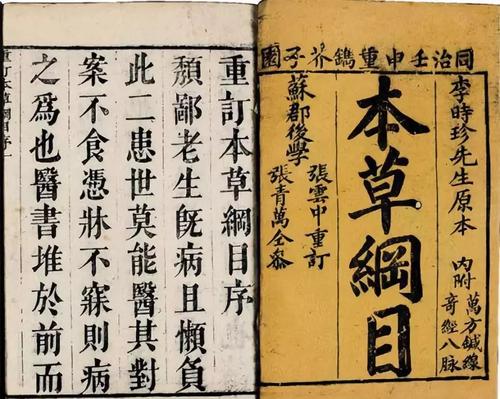 同治壬申重鐫芥子園
李時珍先生原本
內附
萬方鍼線
奇經八脉
本草綱目
蘇郡後學
張雲中重訂
張青萬仝參
重訂本草綱目序
頹鄙老生旣病且懶負
此二患世莫能醫其對
案不食憑牀不寐則病
之爲也醫書堆於前而
重訂本草綱目序一